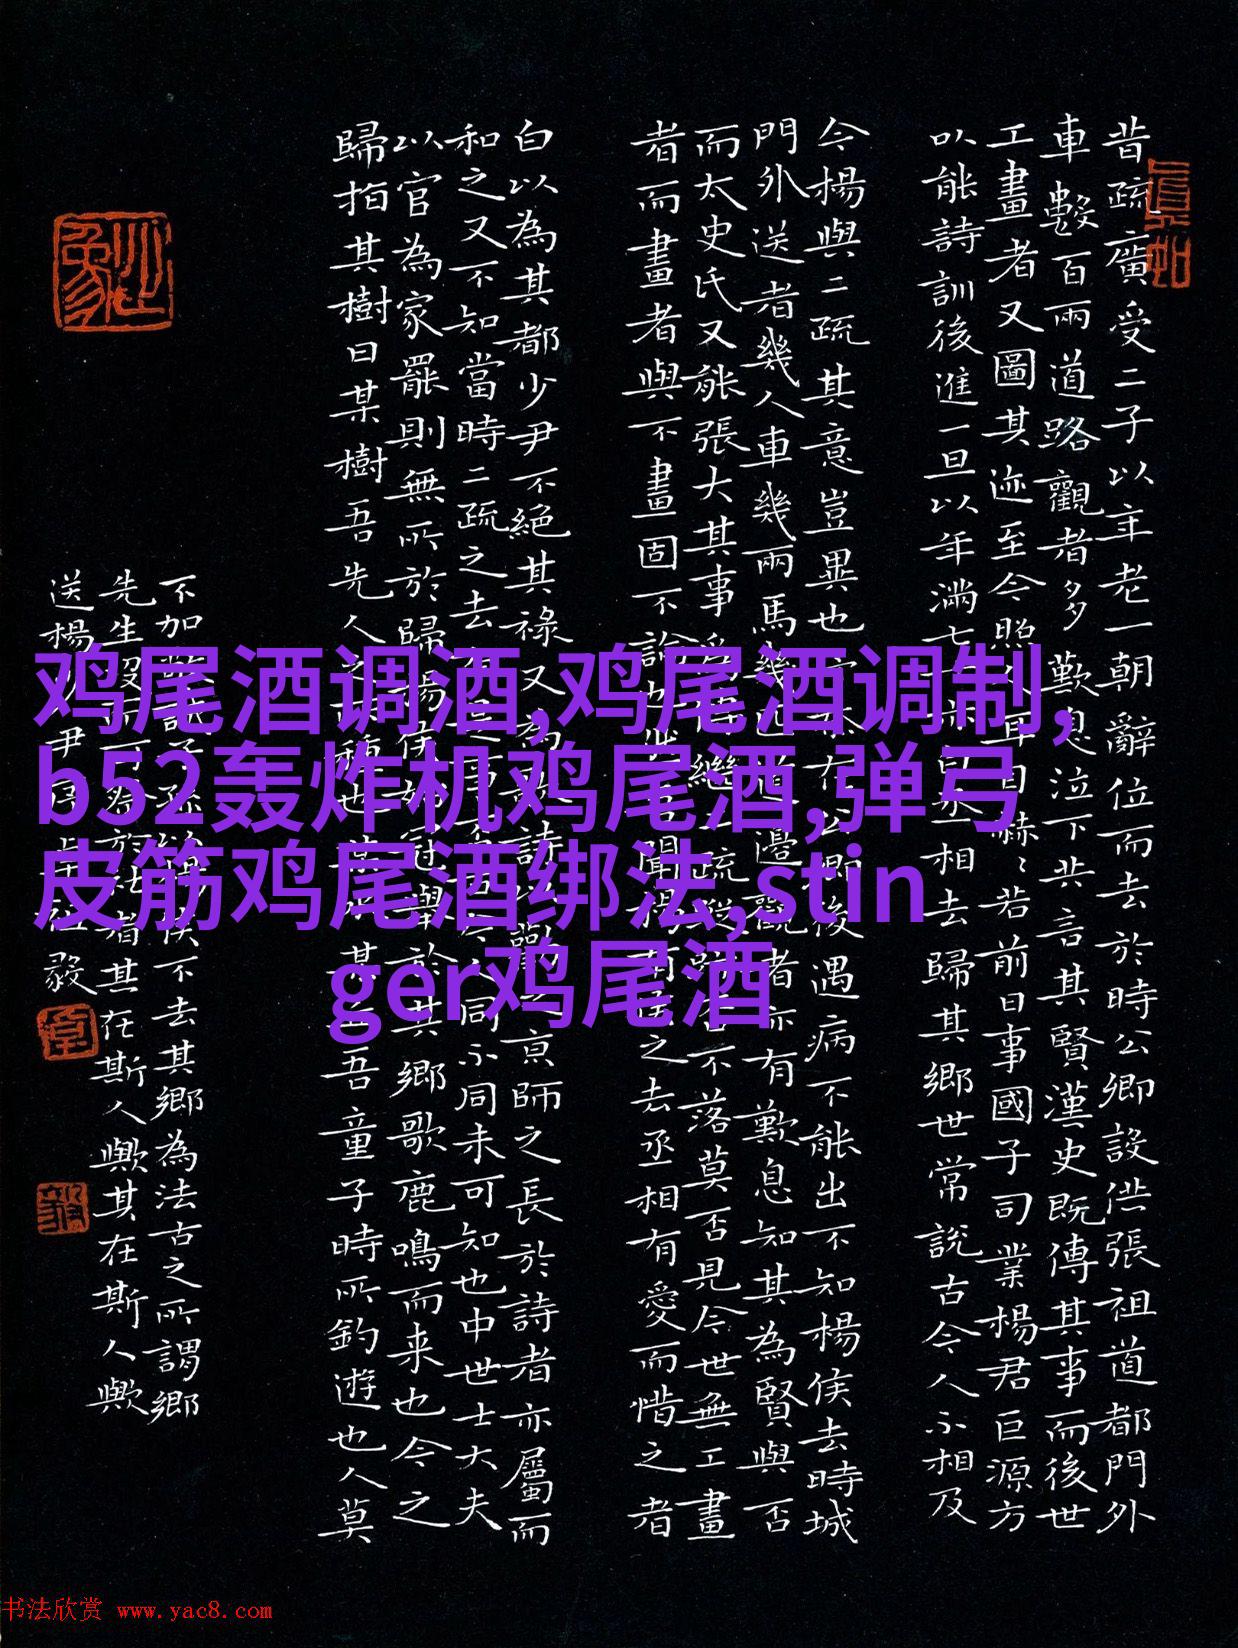 昔疏廣受二子以年老一朝辭位而去於時公卿設供張祖道都門外
車數百兩道路觀者多歎息泣下共言其賢漢史既傳其事而後世
工畫者又圖其迹至今照耳目赫〻若前日事國子司業楊君巨源方
以能詩訓後進一旦以年滿七相去歸其鄉世常說古今人不相及
今楊與二疏其意豈異也公卿後遇病不能出不知楊侯去時城
門外送者幾人車幾兩馬幾道邊觀者亦有歎息知其為賢與否
而太史氏又能張大其事為繼二疏蹤不落莫否見今世無工畫
者而畫者與不畫固不論也聞楊侯之去丞相有愛而惜之者
白以為其都少尹不絕其祿又為詩以勸之京師之長於詩者亦屬而
和之又不知當時二疏之去有是事人同不同未可知也中世士大夫
以官為家罷則無所於歸楊侯冠舉於其鄉歌鹿鳴而来也今之
歸指其樹曰某樹吾先人之種也某其吾童子時所釣遊也人莫
不加子孫以侯不去其鄉為法古之所謂鄉
先生沒而可於社者其在斯人歟其在斯人歟
送楊尹序毅
鸡尾酒调酒,鸡尾酒调制,
b52轰炸机鸡尾酒,弹弓
皮筋鸡尾酒绑法,stin
ger鸡尾酒
书法欣赏 www.yac8.com